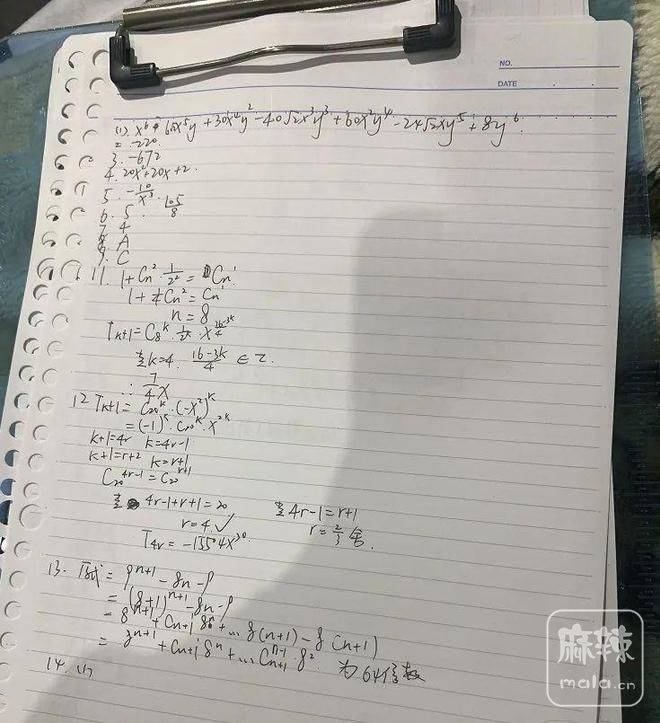 NO.
DATE
(1). x⁶ 6√2x⁵y + 30x⁴y² - 40√2x³y³ + 60x²y⁴ - 24√2xy⁵ + 8y⁶
= -220
3. -672
4. 20x²+20x+2.
5. -10/x³
6. 5. 105/8
7. 4
8. A
9. C
11. 1+Cn²·1/2² = Cn¹
1+¼Cn²=Cn¹
n=8
Tk+1=C8ᵏ x^((16-3k)/4)
k=4 (16-3k)/4 ∈ Z.
∴ 7/4x
12 Tk+1= C20ᵏ·(-x²)ᵏ
=(-1)ᵏ·C20ᵏ·x²ᵏ
k+1=4r k=4r-1
k+1=r+2 k=r+1
C20⁴ʳ⁻¹=C20ʳ⁺¹
4r-1+r+1=20 4r-1=r+1
r=4 ✓ r=2/3 舍.
T4r = -15504x³⁰
13. 原式 = 9ⁿ⁺¹-8n-9
= (8+1)ⁿ⁺¹-8n-9
= 8ⁿ⁺¹+Cn+1 8ⁿ+... 8(n+1)-8(n+1)
= 8ⁿ⁺¹+Cn+1 8ⁿ+...Cn+1ⁿ⁻¹ 8² 为64倍数
14. (1)
麻辣
mala.cn